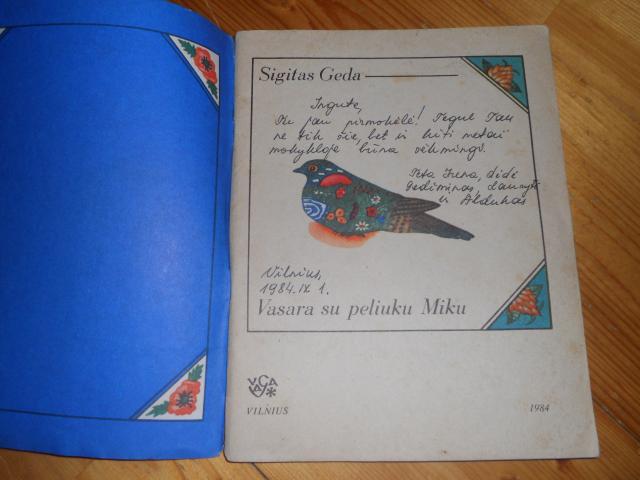 Sigitas Geda
Ingute,
Tu jau pirmokėlė! Tegul Tau
ne tik šie, bet ir kiti metai
mokykloje būna sėkmingi.
Teta Irena, dėdė
Gediminas, Daunytė
ir Aldukas
Vilnius,
1984.IX 1.
Vasara su peliuku Miku
VAGA
VILNIUS
1984